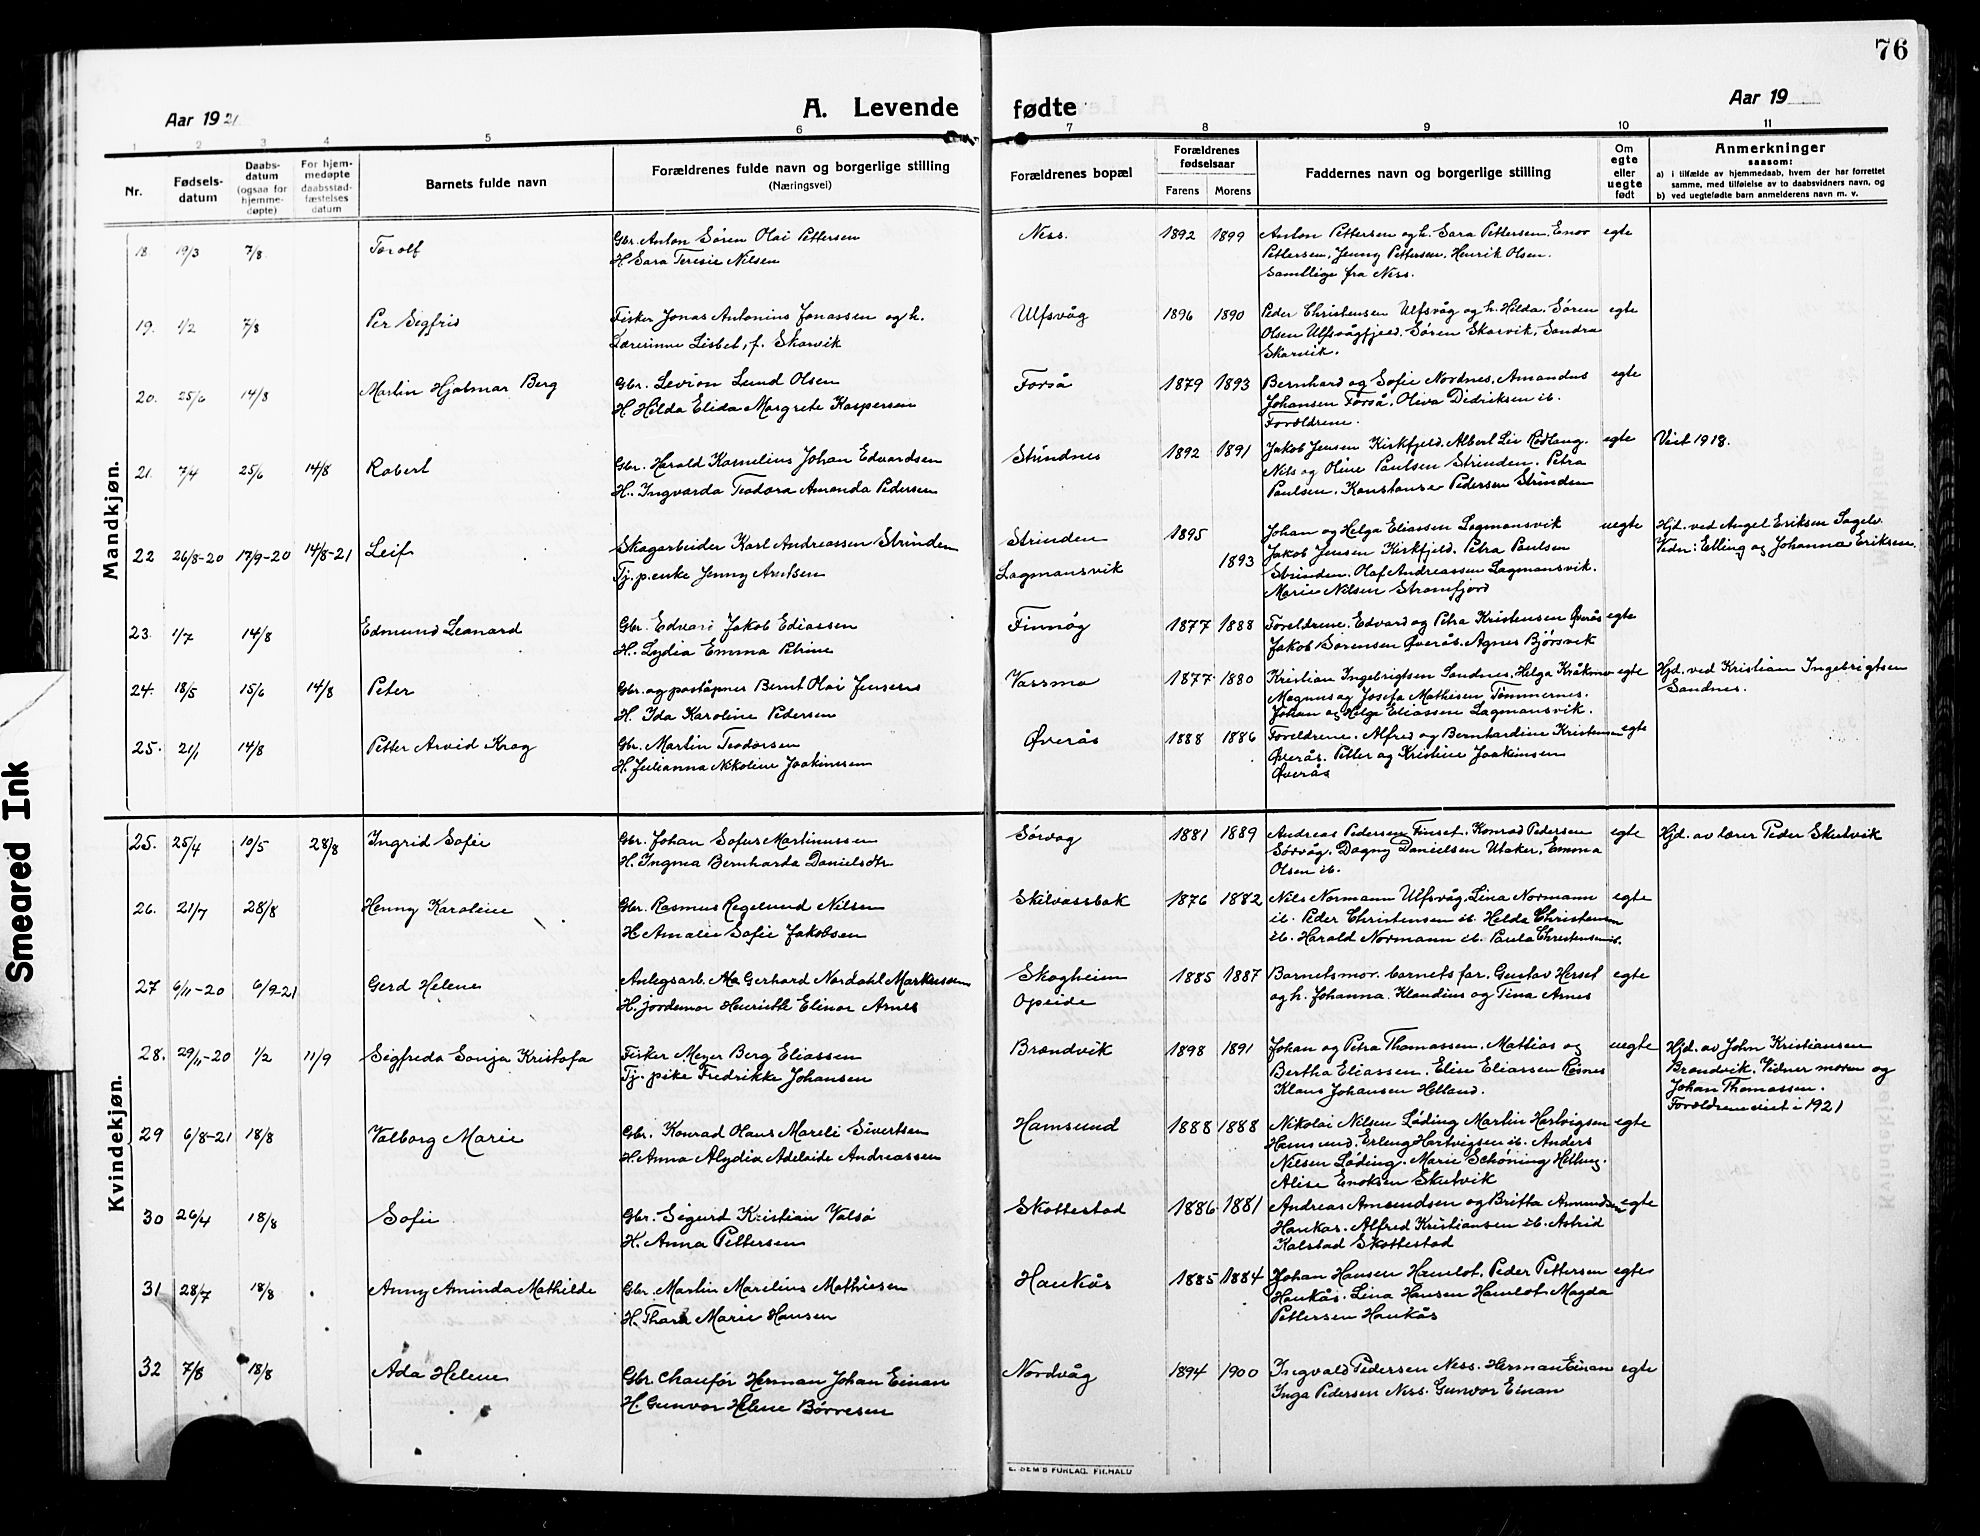 76
Aar 1921
A. Levende fødte
Aar 19
1 2 3 4 5 6 7 8 9 10 11
Nr.
Fødsels-
datum
Daabs-
datum
(ogsaa for
hjemme-
døpte)
For hjem-
medøpte
daabsstad-
fæstelses
datum
Barnets fulde navn
Forældrenes fulde navn og borgerlige stilling
(Næringsvei)
Forældrenes bopæl
Forældrenes
fødselsaar
Farens Morens
Faddernes navn og borgerlige stilling
Om
egte
eller
uegte
født
Anmerkninger
saasom:
a) i tilfælde av hjemmedaab, hvem der har forrettet
samme, med tilføielse av to daabsvidners navn, og
b) ved uegtefødte barn anmelderens navn m. v.
Mandkjøn.
18. 19/3 7/8 Torolf Gbr. Anton Søren Olai Pettersen Ness. 1892 1899 Anton Pettersen og h. Sara Pettersen. Enor egte
H. Sara Teresie Nilsen Pettersen, Jenny Pettersen, Henrik Olsen.
Samtlige fra Ness.
19. 1/2 7/8 Per Sigfrid Fisker Jonas Antonius Jonassen og h. Ulfsvåg 1896 1890 Peder Christensen Ulfsvåg og h. Hilda. Søren egte
Lærerinne Lisbet, f. Skarvik Olsen Ulfsvågfjeld. Søren Skarvik, Sandra
Skarvik.
20. 25/6 14/8 Martin Hjalmar Berg Gbr. Levion Lund Olsen Forså 1879 1893 Bernhard og Sofie Nordnes, Amandus egte
H. Hilda Elida Margrete Kaspersen Johansen Forså, Oliva Didriksen ib.
Forældrene.
21. 7/4 25/6 14/8 Robert Gbr. Harald Kornelius Johan Edvardsen Strindnes 1892 1891 Jakob Jensen Kirkfjeld. Albert Lei Rødlang. egte Viet 1918.
H. Ingvarda Teodora Amanda Pedersen Nils og Oline Paulsen Strinden. Petra
Paulsen. Konstanse Pedersen Strinden
22 26/8-20 17/9-20 14/8-21 Leif Skogarbeider Karl Andreassen Strinden Strinden 1895 Johan og Helga Eliassen Lagmansvik uegte Hjd. ved Angel Eriksen Sagelv.
Tj. p. enke Jenny Arntsen Lagmansvik 1893 Jakob Jensen Kirkfjeld. Petra Paulsen Vidn: Elling og Johanna Eriksen.
Strinden. Olaf Andreassen Lagmansvik.
Marie Nilsen Strømfjord
23. 1/7 14/8 Edmund Leonard Gbr. Edvard Jakob Ediassen Finnøy 1877 1888 Foreldrene. Edvard og Petra Kristensen Øverås egte
H. Lydia Emma Petrine Jakob Sørensen Øverås. Agnes Bjørsvik
24. 18/5 15/6 14/8 Peter Gbr. og poståpner Bernt Olai Jensen Varsmo 1877 1880 Kristian Ingebrigtsen Sandnes. Helga Kråkmo egte Hjd. ved Kristian Ingebrigtsen
H. Ida Karoline Pedersen Magnus og Josefa Mathisen Tømmernes. Sandnes.
Johan og Helga Eliassen Lagmansvik.
25. 21/1 14/8 Petter Arvid Krog Gbr. Martin Teodorsen Øverås 1888 1886 Foreldrene. Alfred og Bernhardine Kristensen egte
H. Julianna Nikoline Joakimsen Øverås. Petter og Kristine Joakimsen
Øverås
Kvindekjøn.
25. 25/4 10/5 28/8 Ingrid Sofie Gbr. Johan Sofus Martinussen Sørvåg 1881 1889 Andreas Pedersen Finset. Konrad Pedersen egte Hjd. av lærer Peder Skutvik
H. Ingma Bernharda Danielsdtr Sørvåg. Dagny Danielsen Utaker, Emma
Olsen ib.
26. 21/7 28/8 Henny Karoline Gbr. Rasmus Regelund Nilsen Skilvassbak 1876 1882 Nils Normann Ulfsvåg. Lina Normann egte
H. Amalie Sofie Jakobsen ib. Peder Christensen ib Hilda Christensen
ib. Harald Normann ib. Paula Christensen ib.
27 6/11-20 6/9-21 Gerd Helene Anlegsarb. Gerhard Nordahl Markussen Skogheim 1885 1887 Barnets mor. barnets far. Gustav Herset egte
H. Jordemor Henriette Elinor Arnes Opeide og h. Johanna. Klaudius og Tina Arnes
28. 29/11-20 1/2 11/9 Sigfreda Sonja Kristofa Fisker Meyer Berg Eliassen Brandvik 1898 1891 Johan og Petra Thomassen. Mathias og uegte Hjd. av John Kristiansen
Tj. pike Fredrikke Johansen Bertha Eliassen. Elise Eliassen Resnes Brandvik. Vidner moren og
Klaus Johansen Helland. Johan Thomassen.
Forældrene viet i 1921
29 6/8-21 18/8 Valborg Marie Gbr. Konrad Hans Mareli Sivertsen Hamsund 1888 1888 Nikolai Nilsen Løding Martin Hartvigsen egte
H. Anna Alydia Adelaide Andreassen Hamsund. Erling Hartvigsen ib. Anders
Nilsen Løding. Marie Schøning
Alise Enoksen Skutvik
30 26/4 18/8 Sofie Gbr. Sigurd Kristian Valsø Skottestad 1886 1881 Andreas Amundsen og Britta Amundsen egte
H. Anna Pettersen Haukås. Alfred Kristiansen ib. Astrid
Kalstad Skottestad
31 28/7 18/8 Anny Aminda Mathilde Gbr. Martin Marelius Mathiesen Haukås 1885 1884 Johan Hansen Hamlot. Peder Pettersen egte
H. Thora Marie Hansen Haukås. Lina Hansen Hamlot. Magda
Pettersen Haukås
32 7/8 18/8 Ada Helene Gbr. Chaufør Herman Johan Einan Nordvåg 1894 1900 Ingvald Pedersen Ness. Herman Einan egte
H. Gunvor Helene Børresen Inga Pedersen Ness. Gunvor Einan
E. SEM'S FORLAG. FR.HALD
Smeared Ink